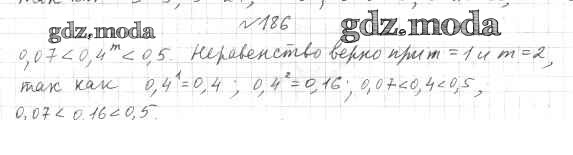 №186
gdz.moda gdz.moda
0,07<0,4^m<0,5. Неравенство верно при m=1 и m=2,
так как 0,4^1=0,4; 0,4^2=0,16; 0,07<0,4<0,5,
0,07<0,16<0,5.